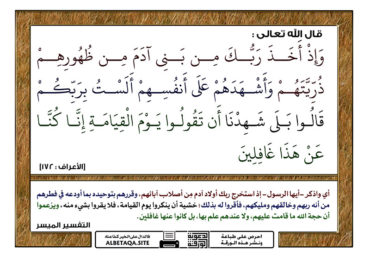 قال الله تعالى :
وَإِذْ أَخَذَ رَبُّكَ مِن بَنِي آدَمَ مِن ظُهُورِهِمْ
ذُرِّيَّتَهُمْ وَأَشْهَدَهُمْ عَلَى أَنفُسِهِمْ أَلَسْتُ بِرَبِّكُمْ
قَالُوا بَلَى شَهِدْنَا أَن تَقُولُوا يَوْمَ الْقِيَامَةِ إِنَّا كُنَّا
عَنْ هَذَا غَافِلِينَ
[الأعراف : ١٧٢]
أي واذكر -أيها الرسول- إذ استخرج ربك أولاد آدم من أصلاب آبائهم، وقررهم بتوحيده بما أودعه في فطرهم
من أنه ربهم وخالقهم ومليكهم، فأقروا له بذلك؛ خشية أن ينكروا يوم القيامة، فلا يقروا بشيء منه، ويزعموا
أن حجة الله ما قامت عليهم، ولا عندهم علم بها، بل كانوا عنها غافلين.
التفسير الميسر
احرص على طباعة
ونشر هذه الورقة
فالدال على الخير كفاعله
ALBETAQA.SITE